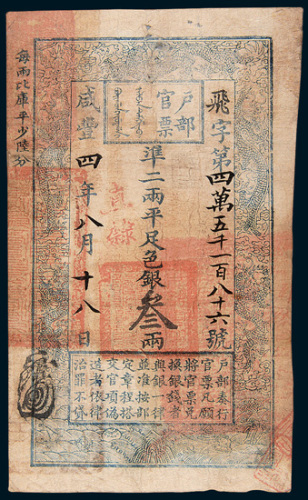 戶部
官票
飛字第四萬五千一百八十六號
準二兩平足色銀叁兩
咸豐四年八月十八日
每兩比庫平少陸分
戶部奉行
官票凡願
將官票兌
換銀錢者
與銀一律
並准按部
定章程搭
交官項偽
造者依律
治罪不貸
直隸